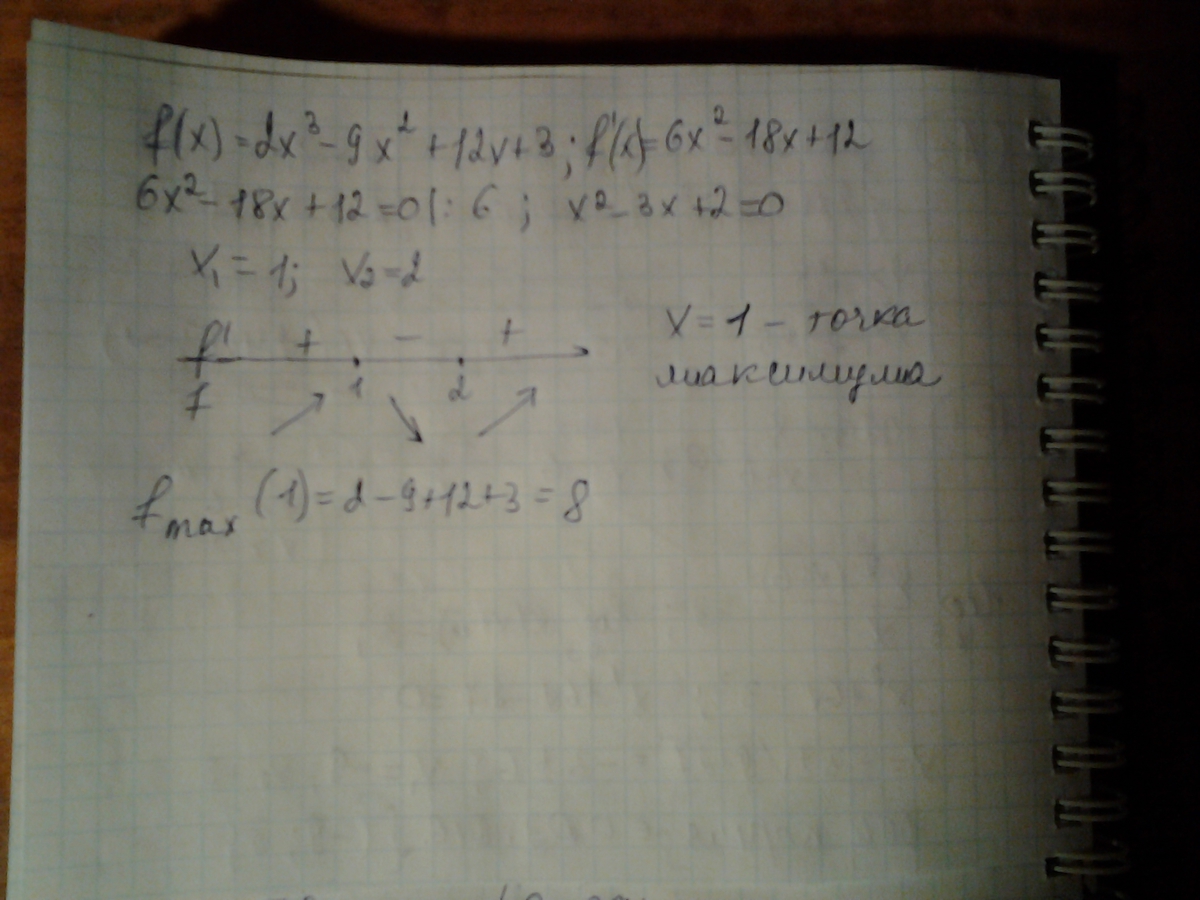 f(x)=2x³-9x²+12x+3; f'(x)=6x²-18x+12
6x²-18x+12=0|:6 ; x²-3x+2=0
x₁=1; x₂=2
x=1 - точка
максимума
f' + - +
f 1 2
f max (1)=2-9+12+3=8